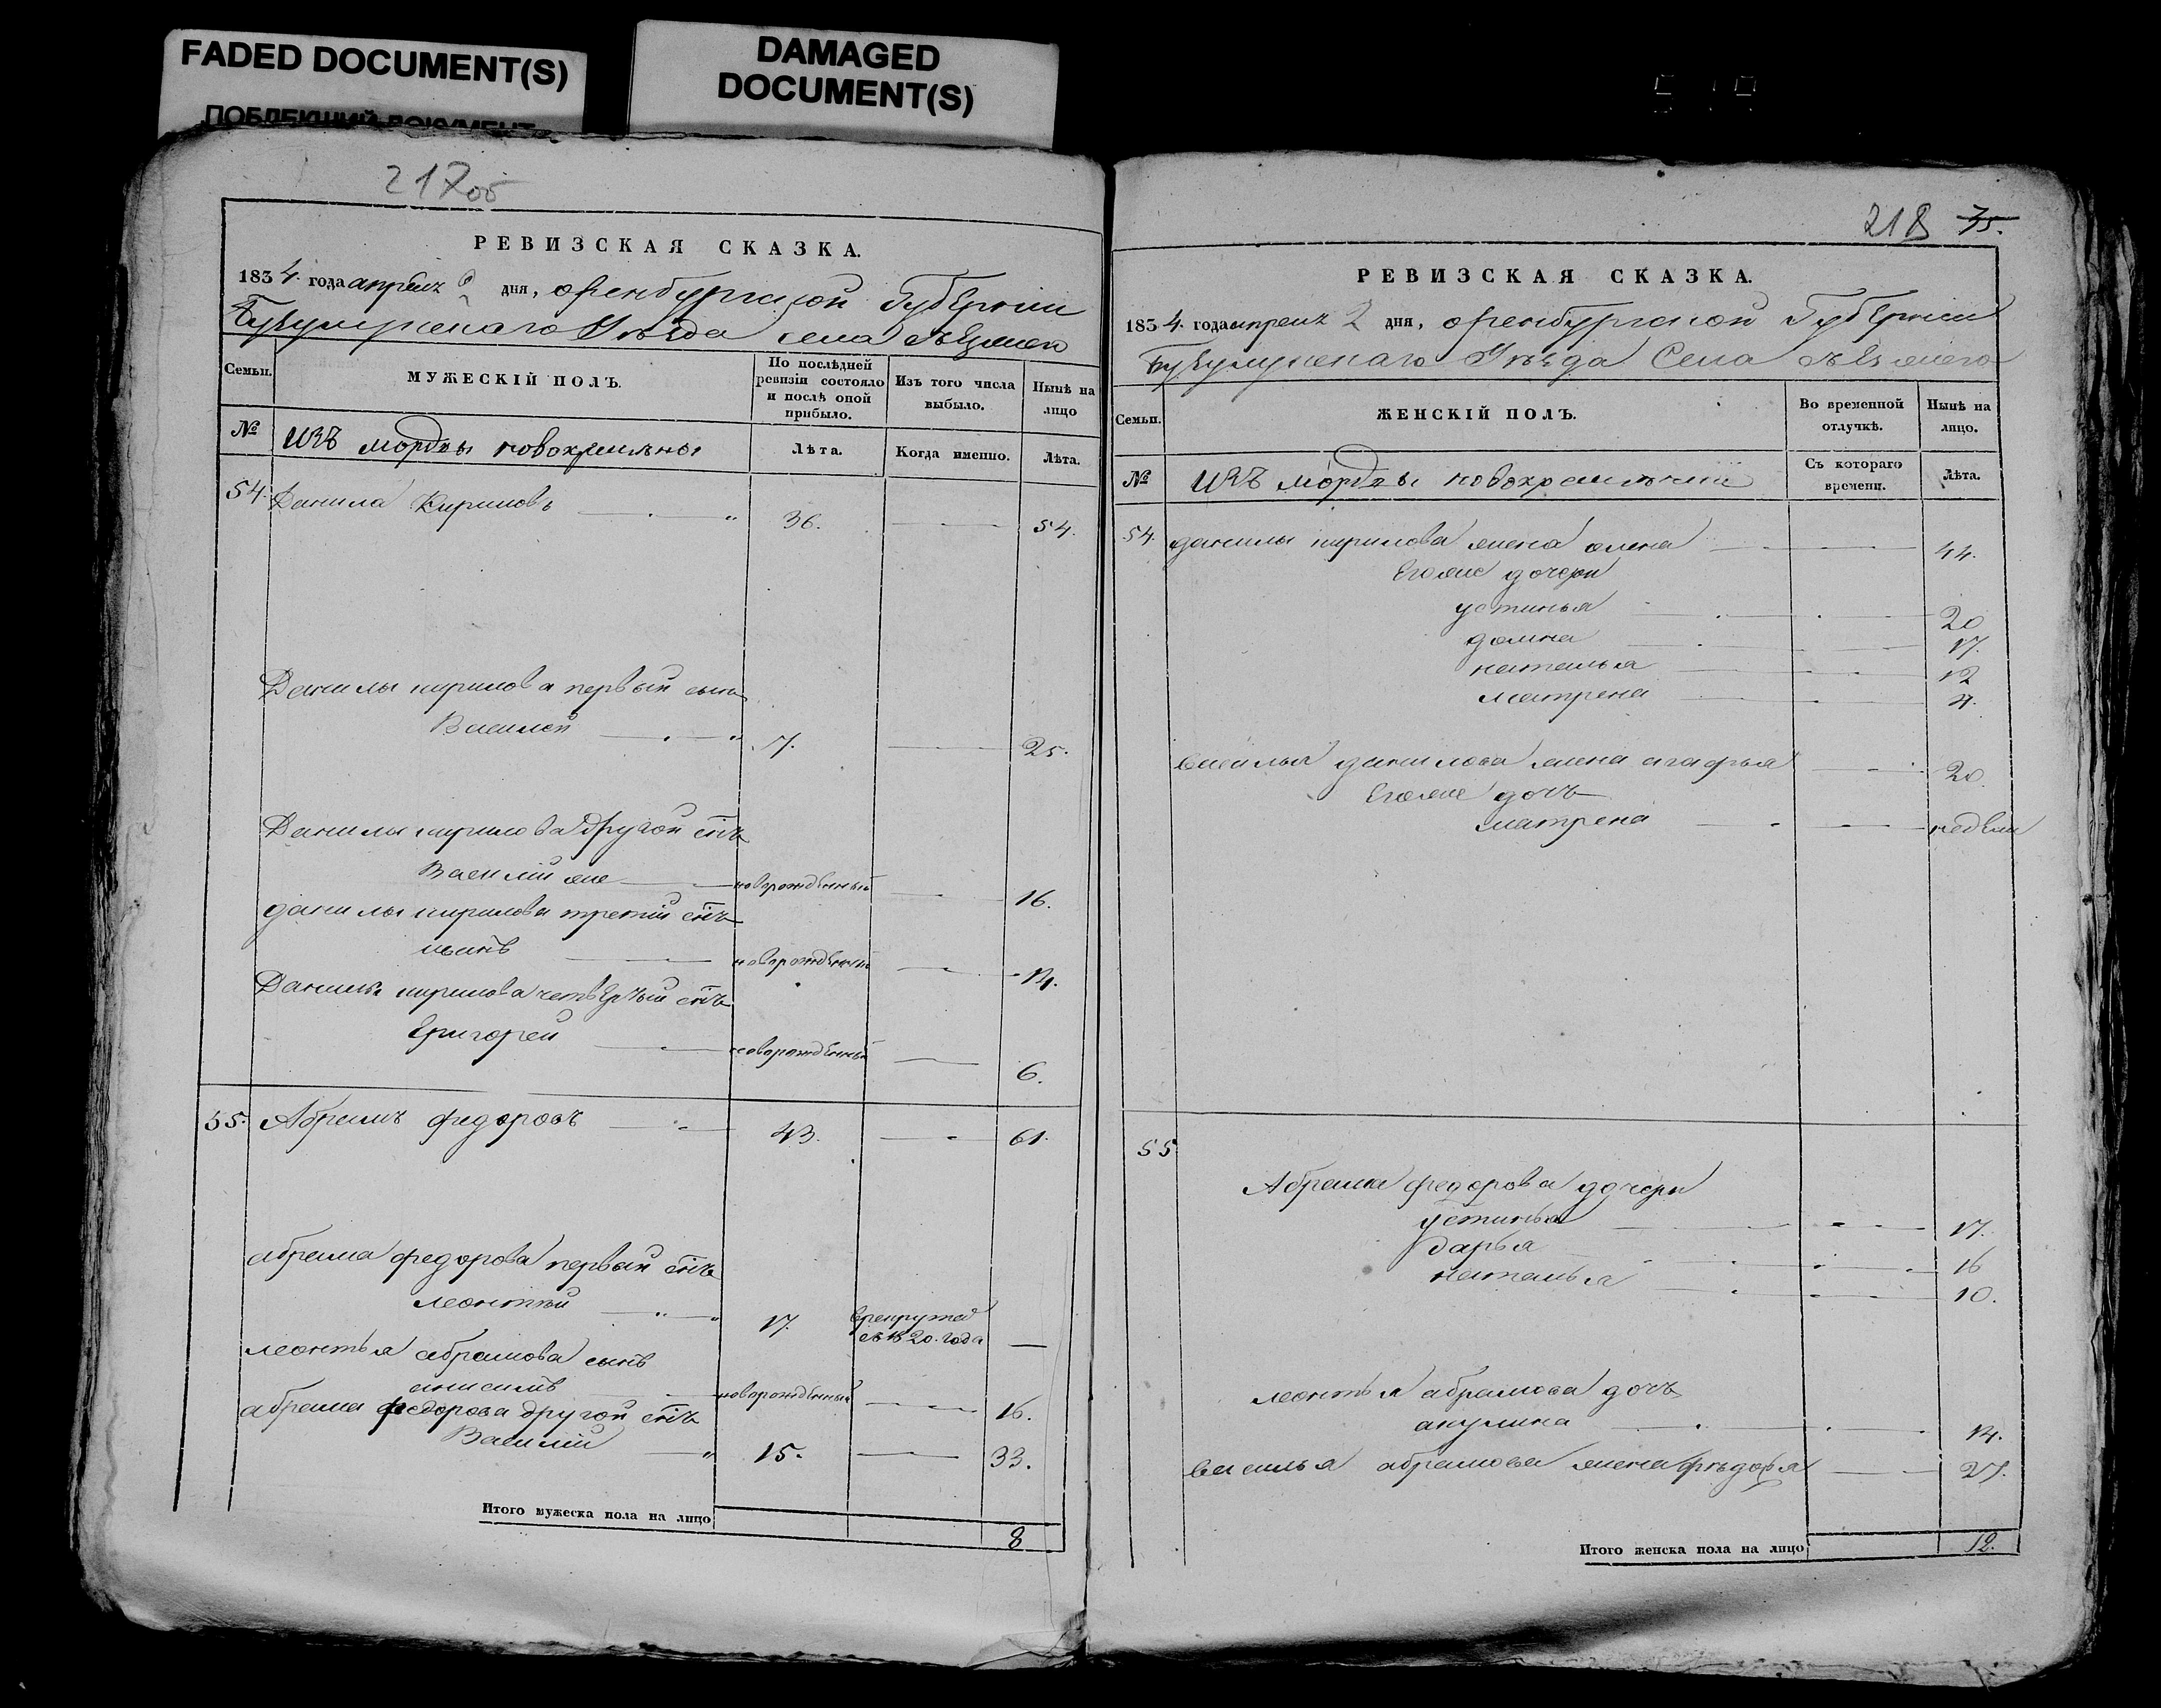 FADED DOCUMENT(S)
ПОБЛЕКШИЙ ДОКУМЕНТ
DAMAGED
DOCUMENT(S)
217об
РЕВИЗСКАЯ СКАЗКА.
1834. года апреля дня, оренбургской Губерніи
Бугульминскаго Уѣзда села
Семьи.
МУЖЕСКІЙ ПОЛЪ.
По послѣдней ревизіи состояло и послѣ оной прибыло.
Изъ того числа выбыло.
Нынѣ на лицо
№
изъ мордвы новокрещены
Лѣта.
Когда именно.
Лѣта.
54. Данила Кириловъ 36. 54.
Данилы кирилова первый сынъ
Василей 7. 25.
Данилы кирилова другой снъ
Василій же новорожденный 16.
данилы кирилова третій снъ
иванъ новорожденный 14.
Данилы кирилова четверый снъ
Григорей новорожденный 6.
55. Абрамъ федоровъ 43. 61.
абрама федорова первый снъ
леонтей 17. в рекруты с 1820. года —
леонтья абрамова сынъ
анисимъ новорожденный 16.
абрама федорова другой снъ
Василій 15. 33.
Итого мужеска пола на лицо 8
218 35.
РЕВИЗСКАЯ СКАЗКА.
1834. года апреля 2 дня, оренбургской Губерніи
Бугульминскаго Уѣзда Села
Семьи.
ЖЕНСКІЙ ПОЛЪ.
Во временной отлучкѣ.
Нынѣ на лицо.
№
изъ мордвы новокрещены
Съ котораго времени.
Лѣта.
54. данилы кирилова жена олена 44.
Егоже дочери
устинья 20
домна 17.
наталья 12
матрена 4.
василья данилова жена агафья 20
Егоже дочь
матрена недели
55
Абрама федорова дочери
устинья 17.
дарья 16
наталья 10.
леонтья абрамова дочь
акулина 14.
василья абрамова жена фѣдора 27.
Итого женска пола на лицо 12.